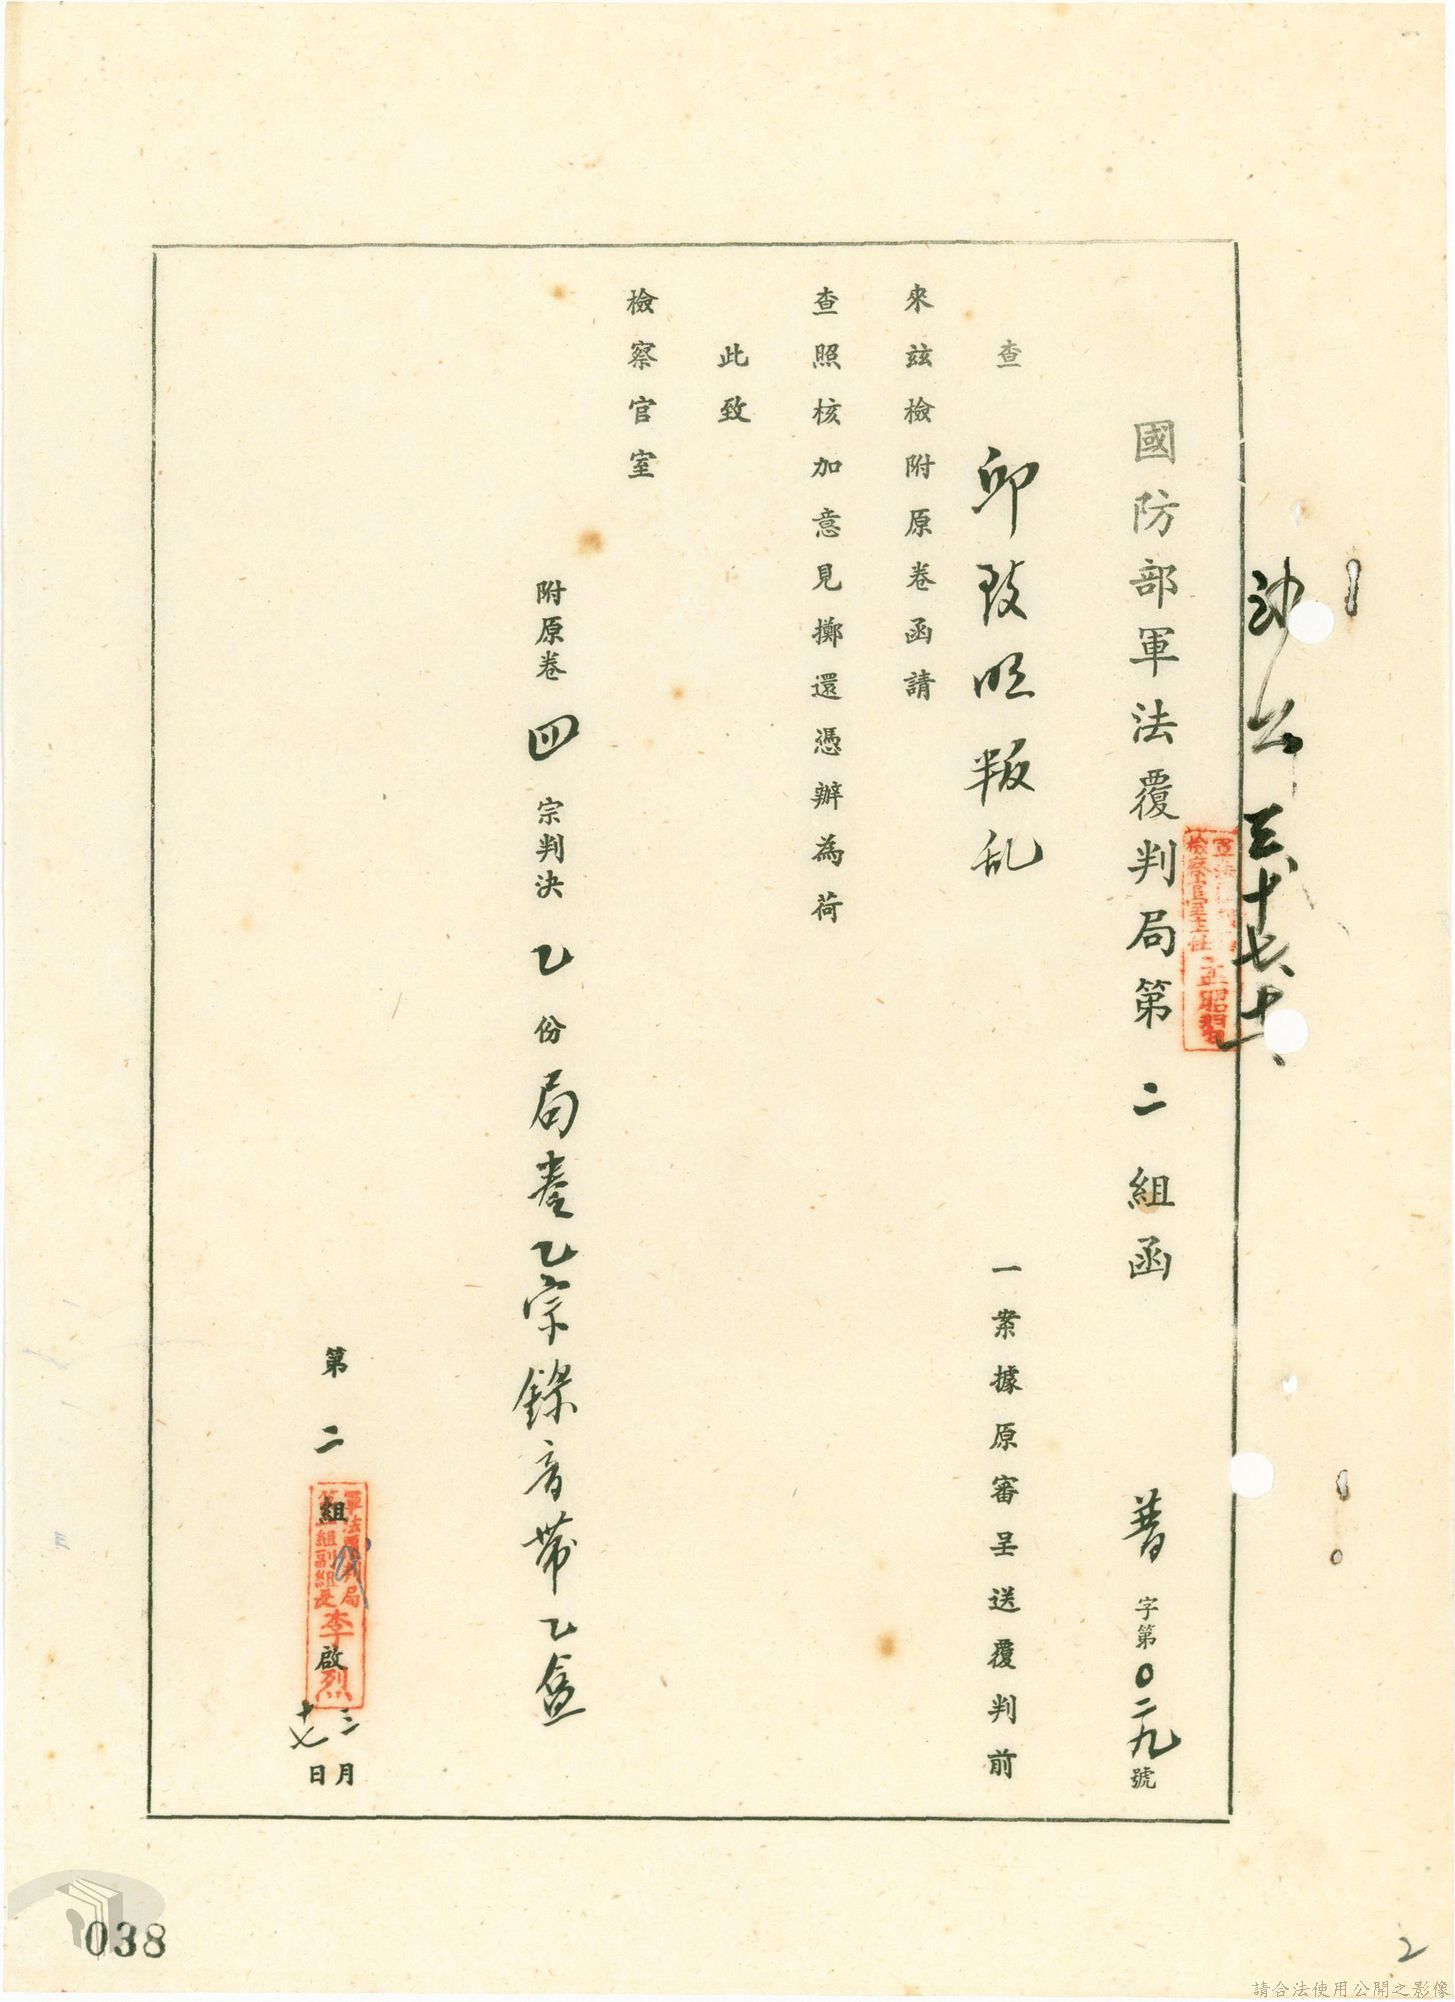 國防部軍法覆判局第二組函 普字第0二九號
查 邱致明叛乱 一案據原審呈送覆判前
來茲檢附原卷函請
查照核加意見擲還憑辦為荷
此致
檢察官室
附原卷四宗判決乙份局卷乙宗錄音帶乙盒
第二組啟 三月十七日
軍法覆判局
第二組副組長 李烈
檢察官室主任
038
2
請合法使用公開之影像